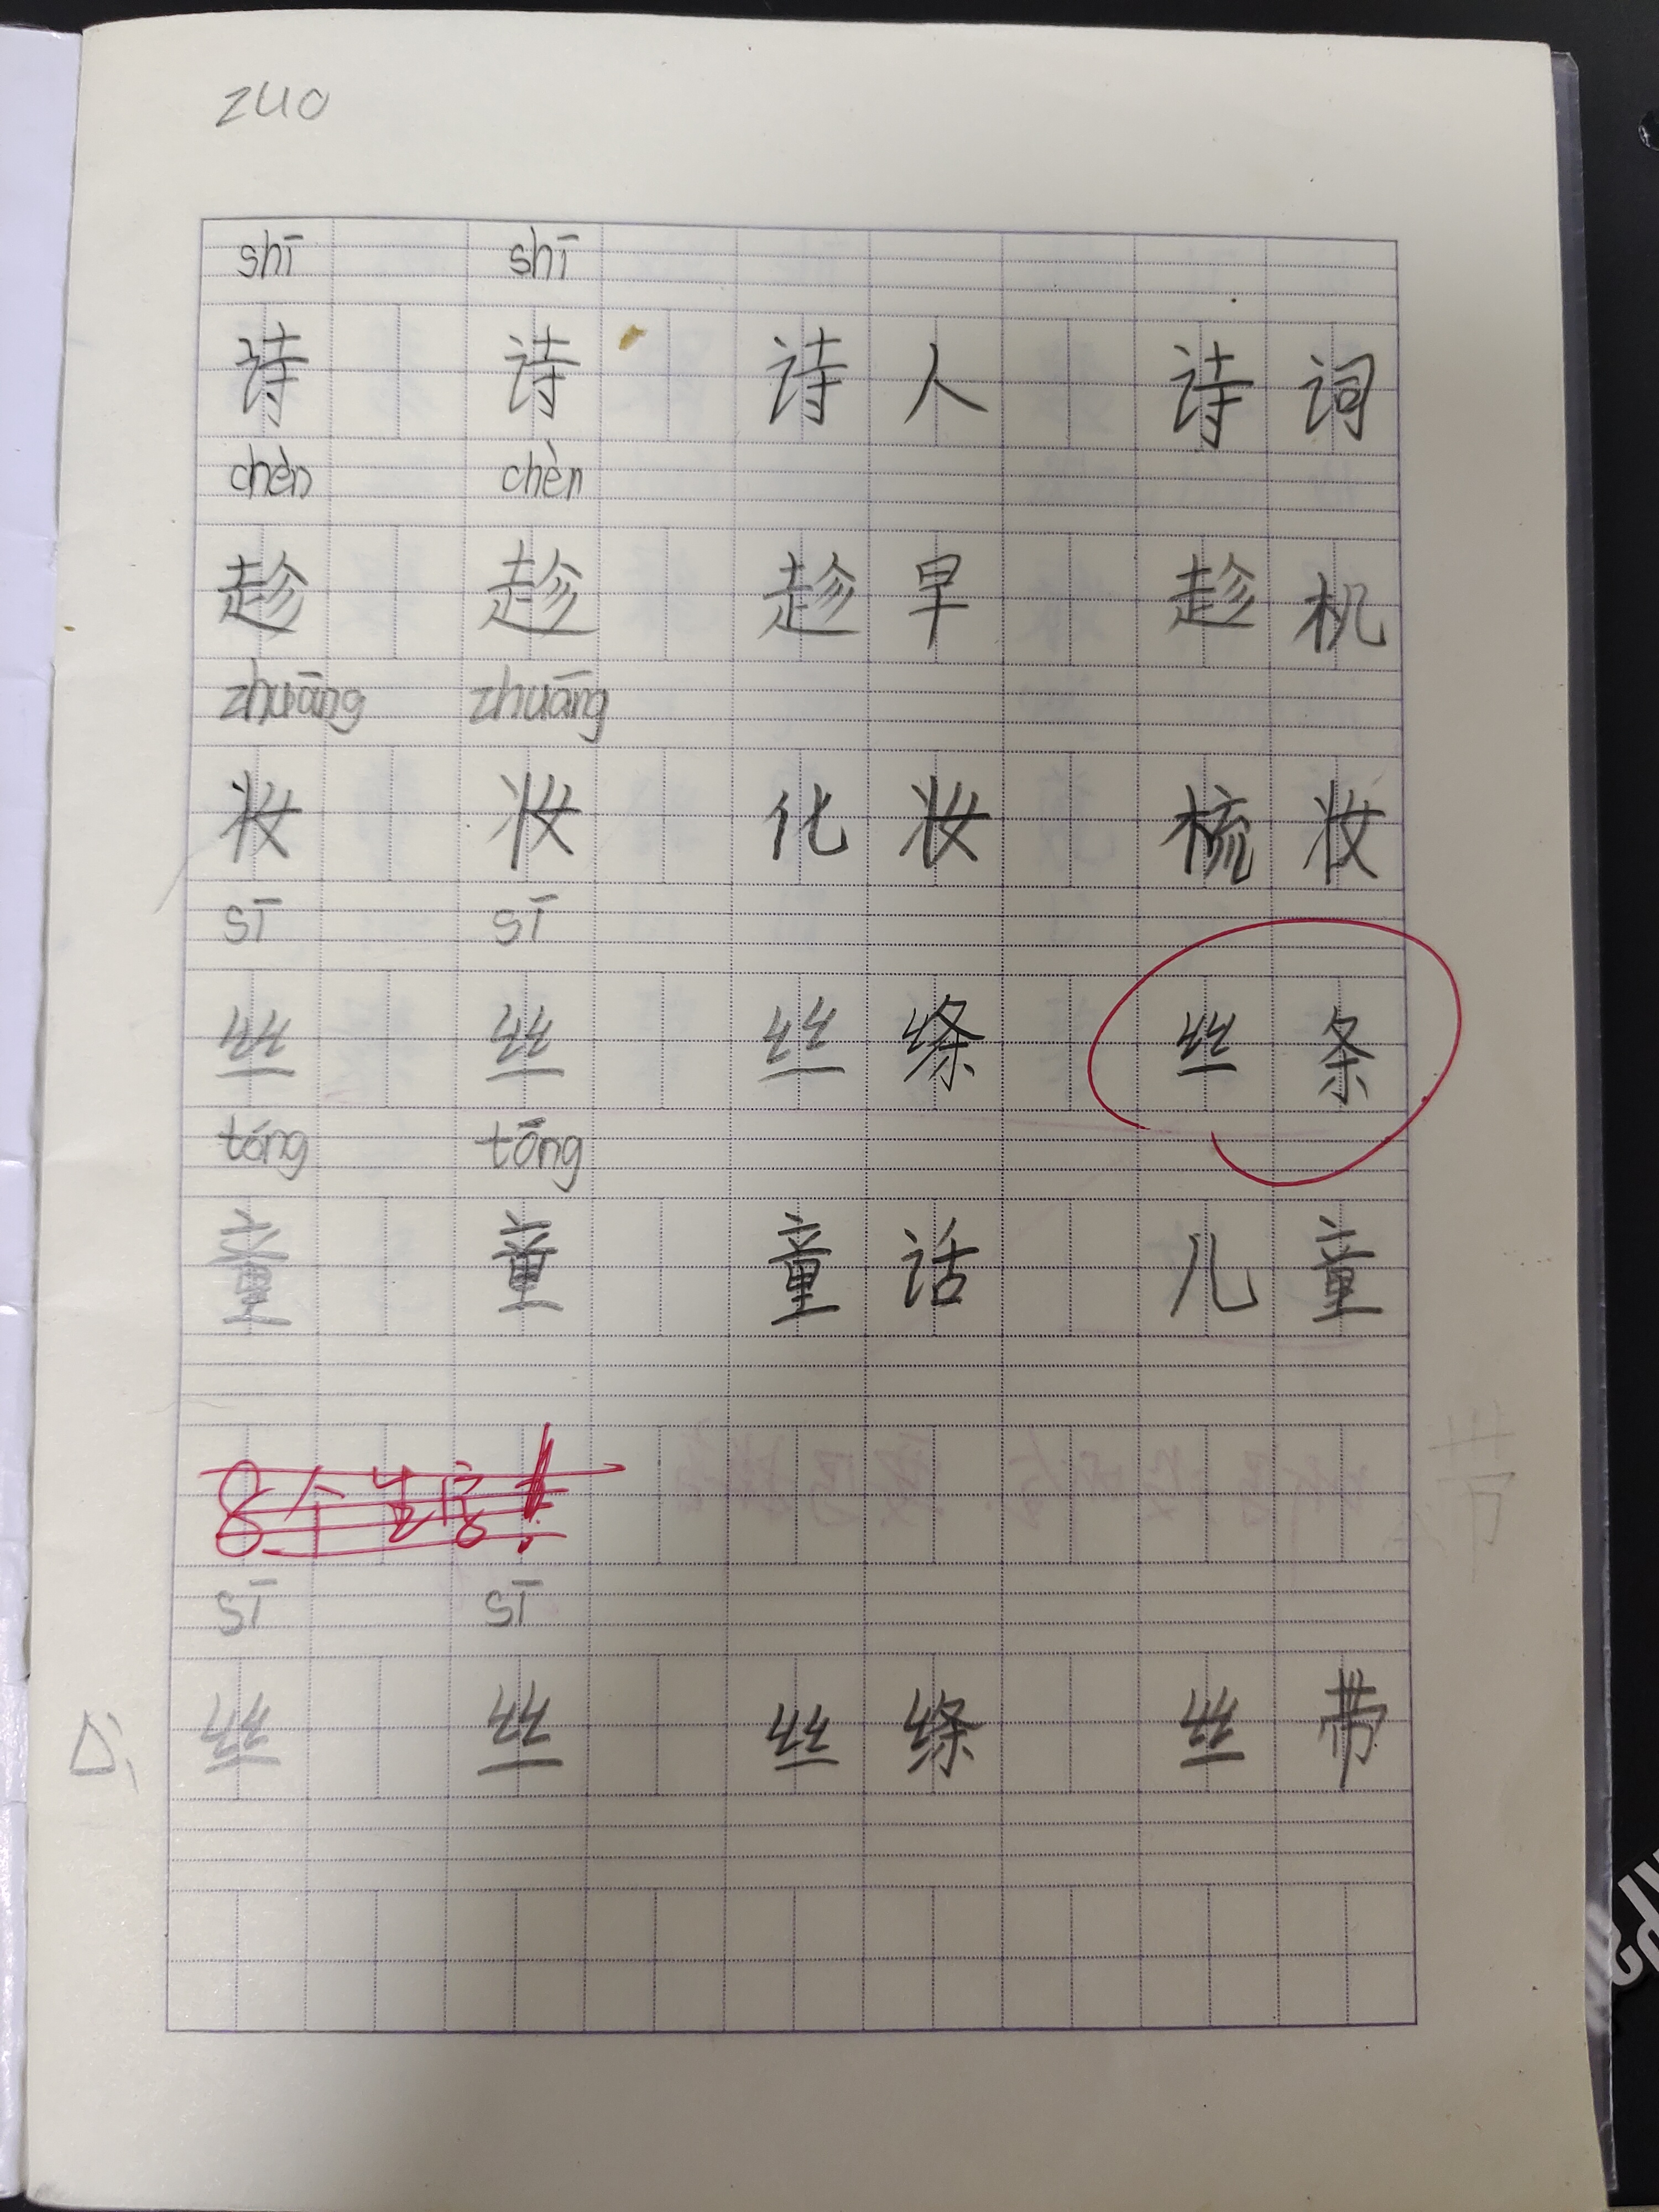 zuo
shī shī
诗 诗 诗人 诗词
chèn chèn
趁 趁 趁早 趁机
zhuāng zhuāng
妆 妆 化妆 梳妆
sī sī
丝 丝 丝绦 丝条
tóng tōng
童 童 童话 儿童
8个生
sī sī
丝 丝 丝绦 丝带